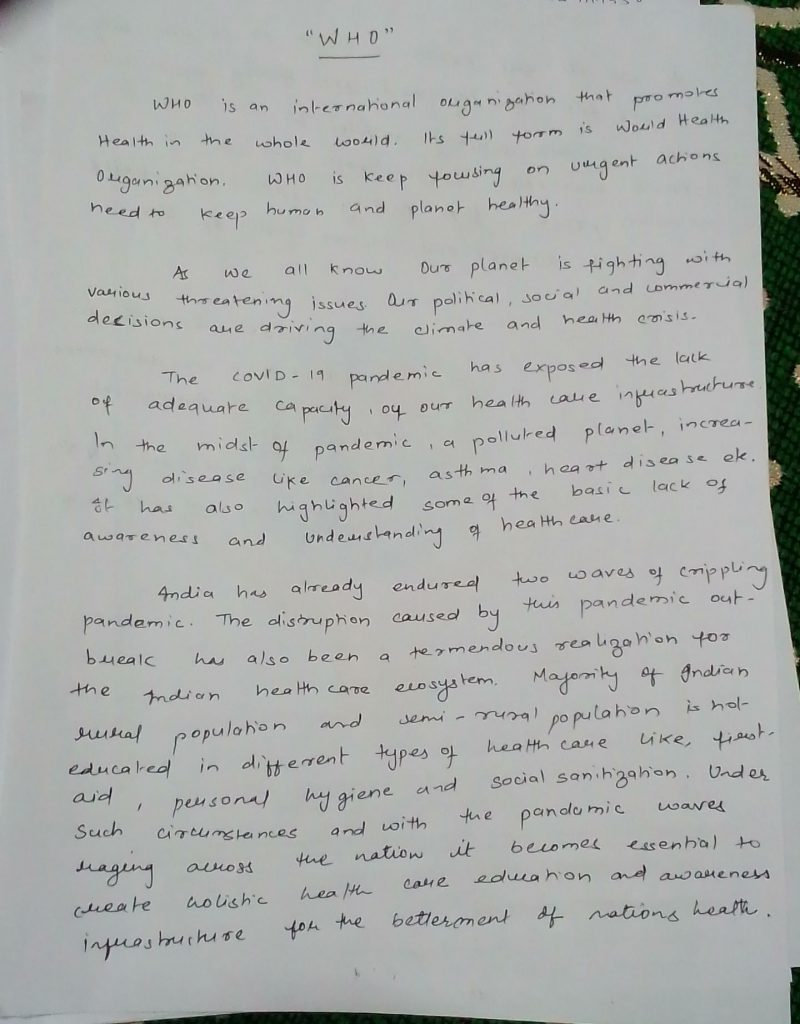 "WHO"
WHO is an international organization that promotes
Health in the whole world. Its full form is World Health
Organization. WHO is keep focusing on urgent actions
need to keep human and planet healthy.
As we all know Our planet is fighting with
various threatening issues. Our political, social and commercial
decisions are driving the climate and health crisis.
The COVID-19 pandemic has exposed the lack
of adequate capacity, of our health care infrastructure.
In the midst of pandemic, a polluted planet, increa-
sing disease like cancer, asthma, heart disease etc.
It has also highlighted some of the basic lack of
awareness and understanding of health care.
India has already endured two waves of crippling
pandemic. The disruption caused by this pandemic out-
break has also been a termendous realization for
the Indian health care ecosystem. Majority of Indian
rural population and semi-rural population is not
educated in different types of health care like, first-
aid, personal hygiene and social sanitization. Under
Such circumstances and with the pandamic waves
raging across the nation it becomes essential to
create holistic health care education and awareness
infrastructure for the betterment of nations health.